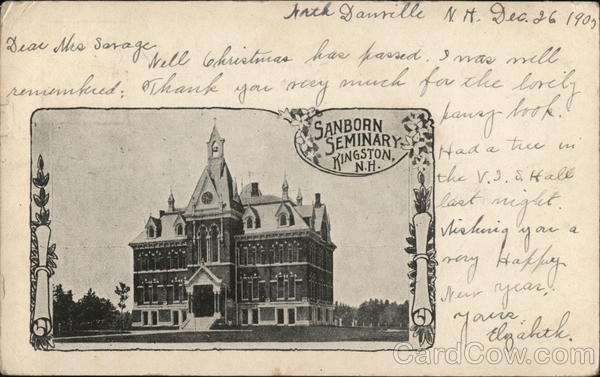 North Danville N.H. Dec. 26 190
Dear Mrs Savage
Well Christmas has passed. I was well
remembered: Thank you very much for the lovely
pansy book.
Had a tree in
the V. I. S Hall
last night.
Wishing you a
very Happy
New Year,
Yours
Elizabeth.
SANBORN
SEMINARY
KINGSTON,
N.H.
CardCow.com